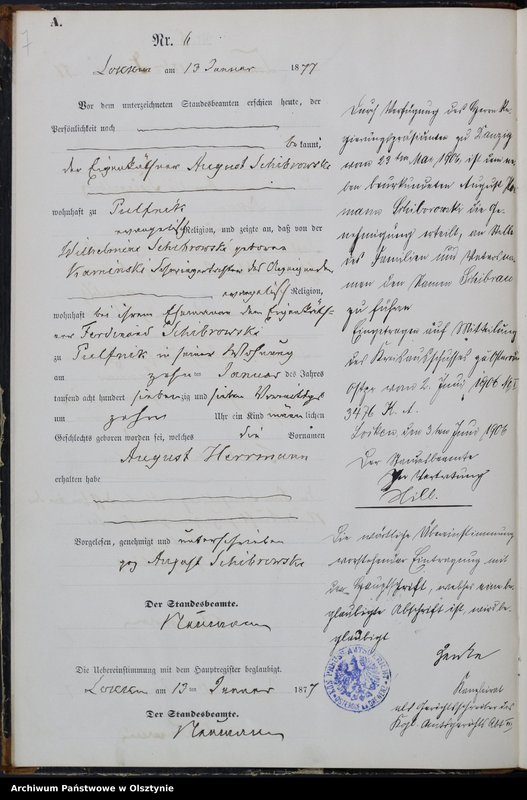 7
A.
Nr. 6
Locken am 13 Januar 1877
Vor dem unterzeichneten Standesbeamten erschien heute, der
Persönlichkeit nach
bekannt,
der Eigenkäthner August Schibrowski
wohnhaft zu Pulfnik
evangelisch Religion, und zeigte an, daß von der
Wilhelmine Schibrowski geborene
Kaminski Schwiegertochter des
evangelisch Religion,
wohnhaft bei ihrem Ehemann dem Eigenkäth-
ner Ferdinand Schibrowski
zu Pulfnik in seiner Wohnung
am zehn= Januar des Jahres
tausend acht hundert siebenzig und sieben Vormittags
um zehn Uhr ein Kind männlichen
Geschlechts geboren worden sei, welches die Vornamen
August Herrmann
erhalten habe
Vorgelesen, genehmigt und unterschrieben
gez August Schibrowski
Der Standesbeamte.
Naumann
Die Uebereinstimmung mit dem Hauptregister beglaubigt.
Locken am 13= Januar 1877
Der Standesbeamte.
Naumann
Durch Verfügung des Herrn Re-
gierungspräsidenten zu Danzig
vom 22ten Mai 1906, ist dem ne-
ben beurkundeten August Her-
mann Schibrowski die Ge-
nehmigung erteilt, an Stelle
des Familien und Vaterna-
men den Namen Schibrau
zu führen
Eingetragen auf Mitteilung
des Kreisausschusses zu Osterode
Ostpr vom 2. Juni 1906
3476 K. A.
Locken, den 3ten Juni 1906
Der Standesbeamte
In Vertretung
Hill.
Die wörtliche Übereinstimmung
vorstehender Eintragung mit
der Hauptschrift, welche eine be-
glaubigte Abschrift ist, wird be-
glaubigt
Kanzlist
als Gerichtsschreiber des
Kgl. Amtsgerichts Abt
Archiwum Państwowe w Olsztynie